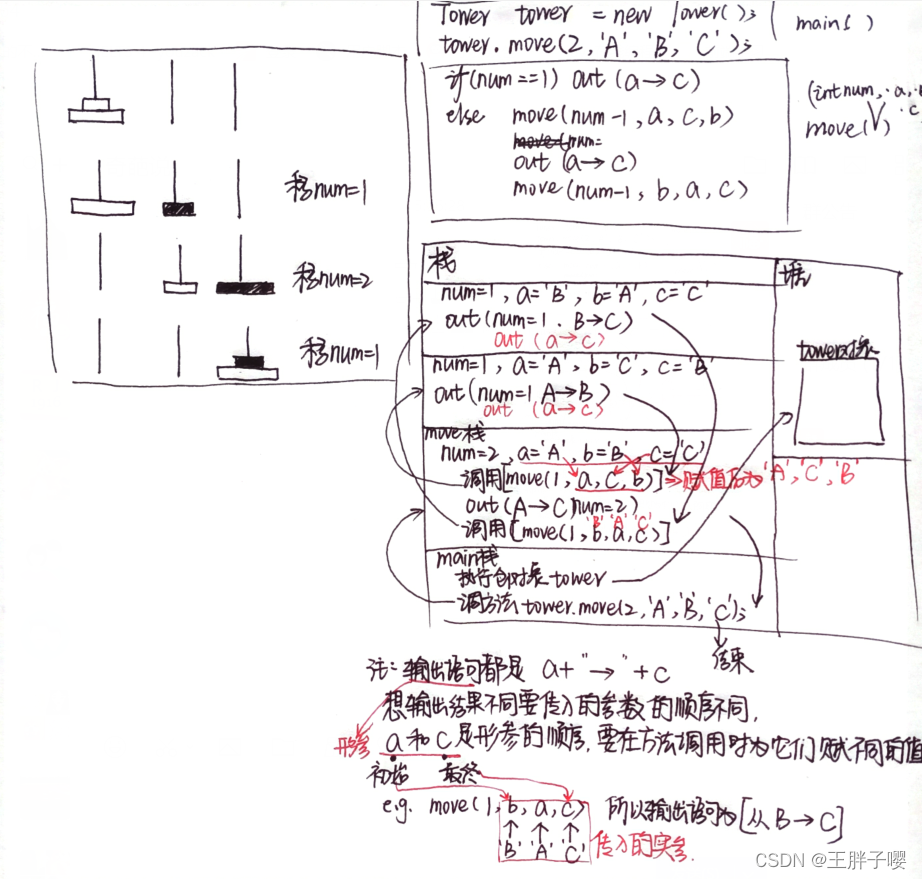 Tower tower = new Tower();
main()
tower.move(2,'A','B','C');
if(num==1) out (a→c)
else move(num-1,a,c,b)
out (a→c)
move(num-1,b,a,c)
(int num, a,
c
move( )
移num=1
移num=2
移num=1
栈
堆
num=1,a='B',b='A',c='C'
out(num=1.B→C)
out (a→c)
tower对象
num=1,a='A',b='C',c='B'
out(num=1,A→B)
out (a→c)
move栈
num=2,a='A',b='B',c='C'
调用[move(1,a,c,b)]⇒赋值后为'A','C','B'
out(A→C)num=2)
'B' 'A' 'C'
调用[move(1,b,a,c)]
main栈
执行创对象tower
调方法tower.move(2,'A','B','C');
结束
注:输出语句都是 a+"→"+c
想输出结果不同要传入的参数的顺序不同,
形参 a和c是形参的顺序.要在方法调用时为它们赋不同的值
初始 最终
e.g. move(1,b,a,c) 所以输出语句为[从B→C]
'B' 'A' 'C' 传入的实参.
CSDN @王胖子嘤